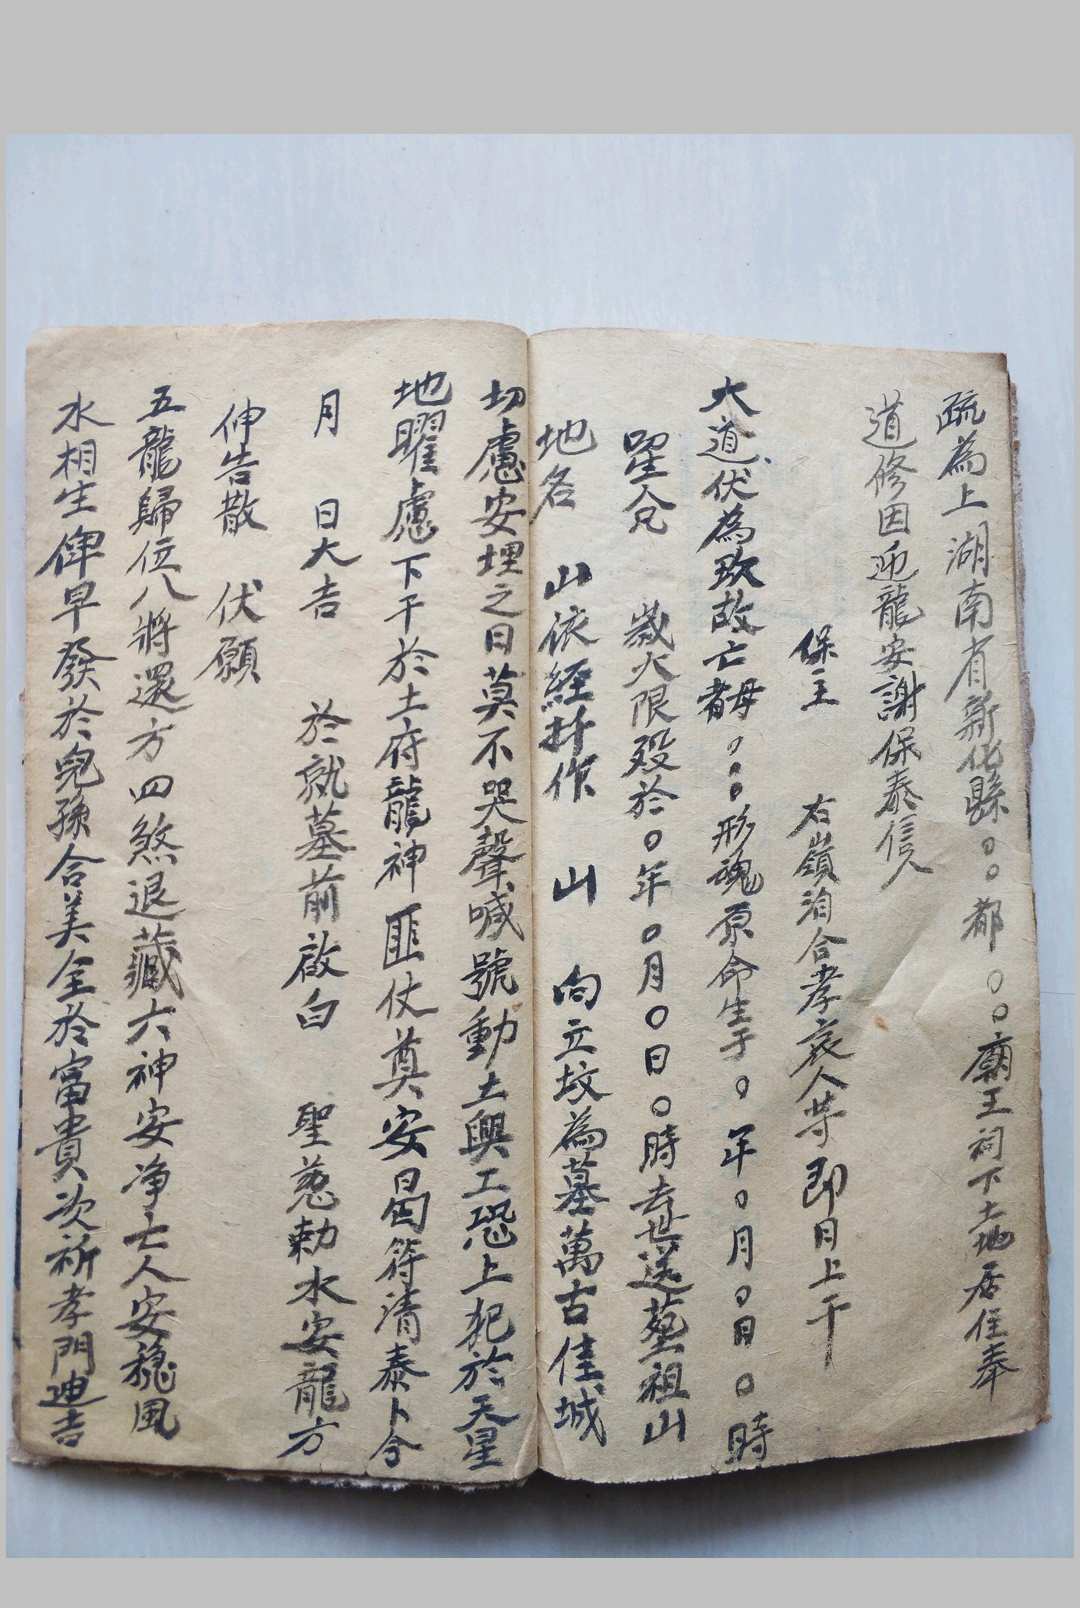 疏為上湖南省新化縣○○都○○廟王祠下土地居住奉
道修因迎龍安謝保泰信人
保主 右嶺洎合孝哀人等即日上干
大道伏為故亡者母○○形魂原命生于○年○月○日○時
歲大限殁於○年○月○日○時去世送塟祖山
地名 山依經扦作 山 向立坟為墓萬古佳城
切慮安埋之日莫不哭聲喊號動土興工恐上犯於天星
地曜慮下干於土府龍神匪仗奠安曷符清泰卜今
月 日大吉 於就墓前啟白 聖慈勅水安龍方
伸告散 伏願
五龍歸位八將還方四煞退藏六神安净亡人安穩風
水相生俾早發於兒孫合美全於富貴次祈孝門迪吉